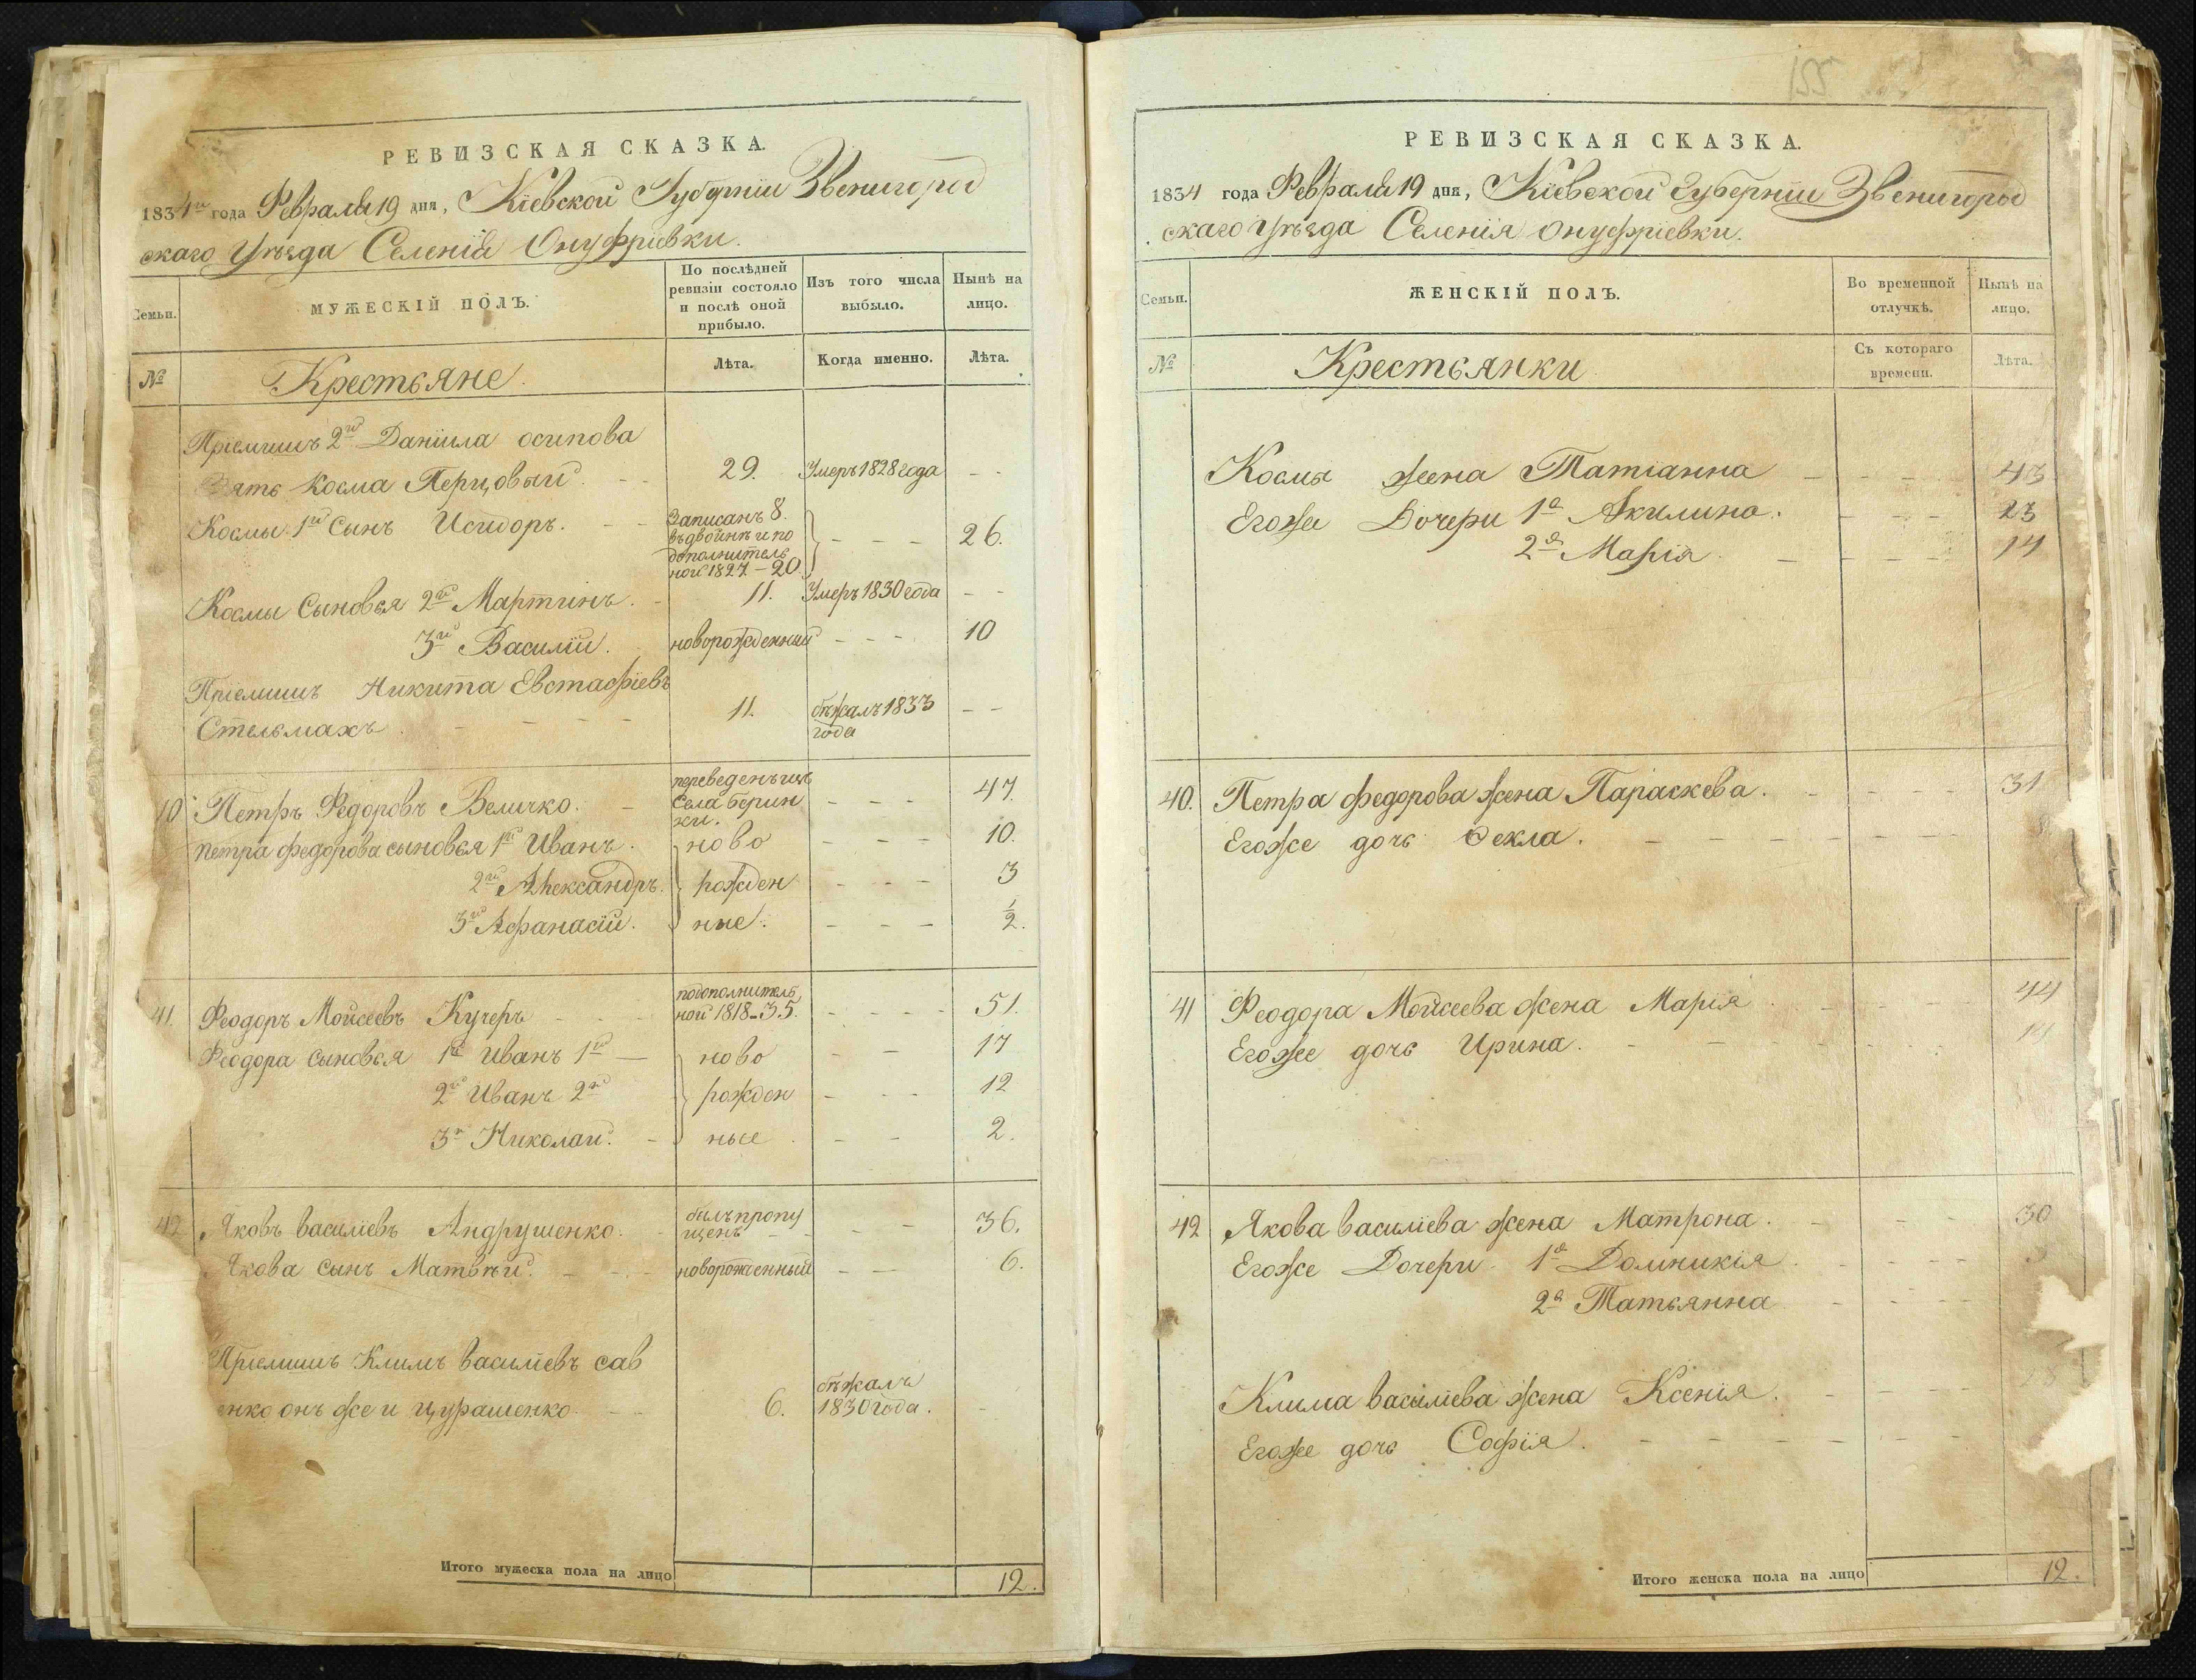 РЕВИЗСКАЯ СКАЗКА.
1834го года Февраля 19 дня, Кіевской Губерніи Звенигород
скаго Уѣзда Селенія Онуфріевки.
Семьи.
МУЖЕСКІЙ ПОЛЪ.
По послѣдней ревизіи состояло и послѣ оной прибыло.
Изъ того числа выбыло.
Нынѣ на лицо.
№
Крестьяне.
Лѣта.
Когда именно.
Лѣта.
Пріемышъ 2й Даніила осипова
Зять Косма Перцовый. - - 29. Умеръ 1828 года - -
Космы 1й Сынъ Исидоръ. - - Записанъ 8. въдвойнѣ и по дополнитель ной 1827 - 20. - - - 26.
Космы Сыновья 2й Мартинъ. - 11. Умеръ 1830 года - -
3й Василій. новорожденный - - - 10
Пріемышъ Никита Евстафіевъ
Стельмахъ. - - - - 11. бѣжалъ 1833 года - -
40 Петръ Федоровъ Величко. - переведенъ изъ Села Берин ки. - - - 47.
Петра федорова сыновья 1й Иванъ. ново - - - 10.
2й Александръ. рожден - - - 3
3й Афанасій. ные. - - - ½.
41. Феодоръ Мойсеевъ Кучеръ - - - подополнитель ной 1818-35. - - - - 51.
Феодора сыновья 1й Иванъ 1й — ново - - 17
2й Иванъ 2й рожден - - - 12
3й Николай. - ные - - 2.
42 Яковъ василіевъ Андрушенко. - былъ пропу щенъ - - - - 36.
Якова сынъ Матвѣй. - - - новорожденный - - 6.
Пріемышъ Климъ василіевъ сав
енко онъ же и цурашенко - - 6. бѣжалъ 1830 года. -
Итого мужеска пола на лицо 12.
155
РЕВИЗСКАЯ СКАЗКА.
1834 года Февраля 19 дня, Кіевской Губерніи Звенигород
скаго Уѣзда Селенія Онуфріевки.
Семьи.
ЖЕНСКІЙ ПОЛЪ.
Во временной отлучкѣ.
Нынѣ на лицо.
№
Крестьянки
Съ котораго времени.
Лѣта.
Космы жена Татіанна - - - - 43
Егоже Дочери 1я Акилина. - - - 23
2я Марія. - - - - 14
40. Петра федорова жена Параскева. - - - - 31
Егоже дочь Ѳекла. - - - - -
41 Феодора Мойсеева жена Марія - - - - 44
Егоже дочь Ирина. - - - -
42 Якова василіева жена Матрона. - - - 30
Егоже Дочери 1я Домникія - - - -
2я Татьянна - - - -
Клима василіева жена Ксенія. - - - -
Егоже дочь Софія. - - - - - -
Итого женска пола на лицо 12.